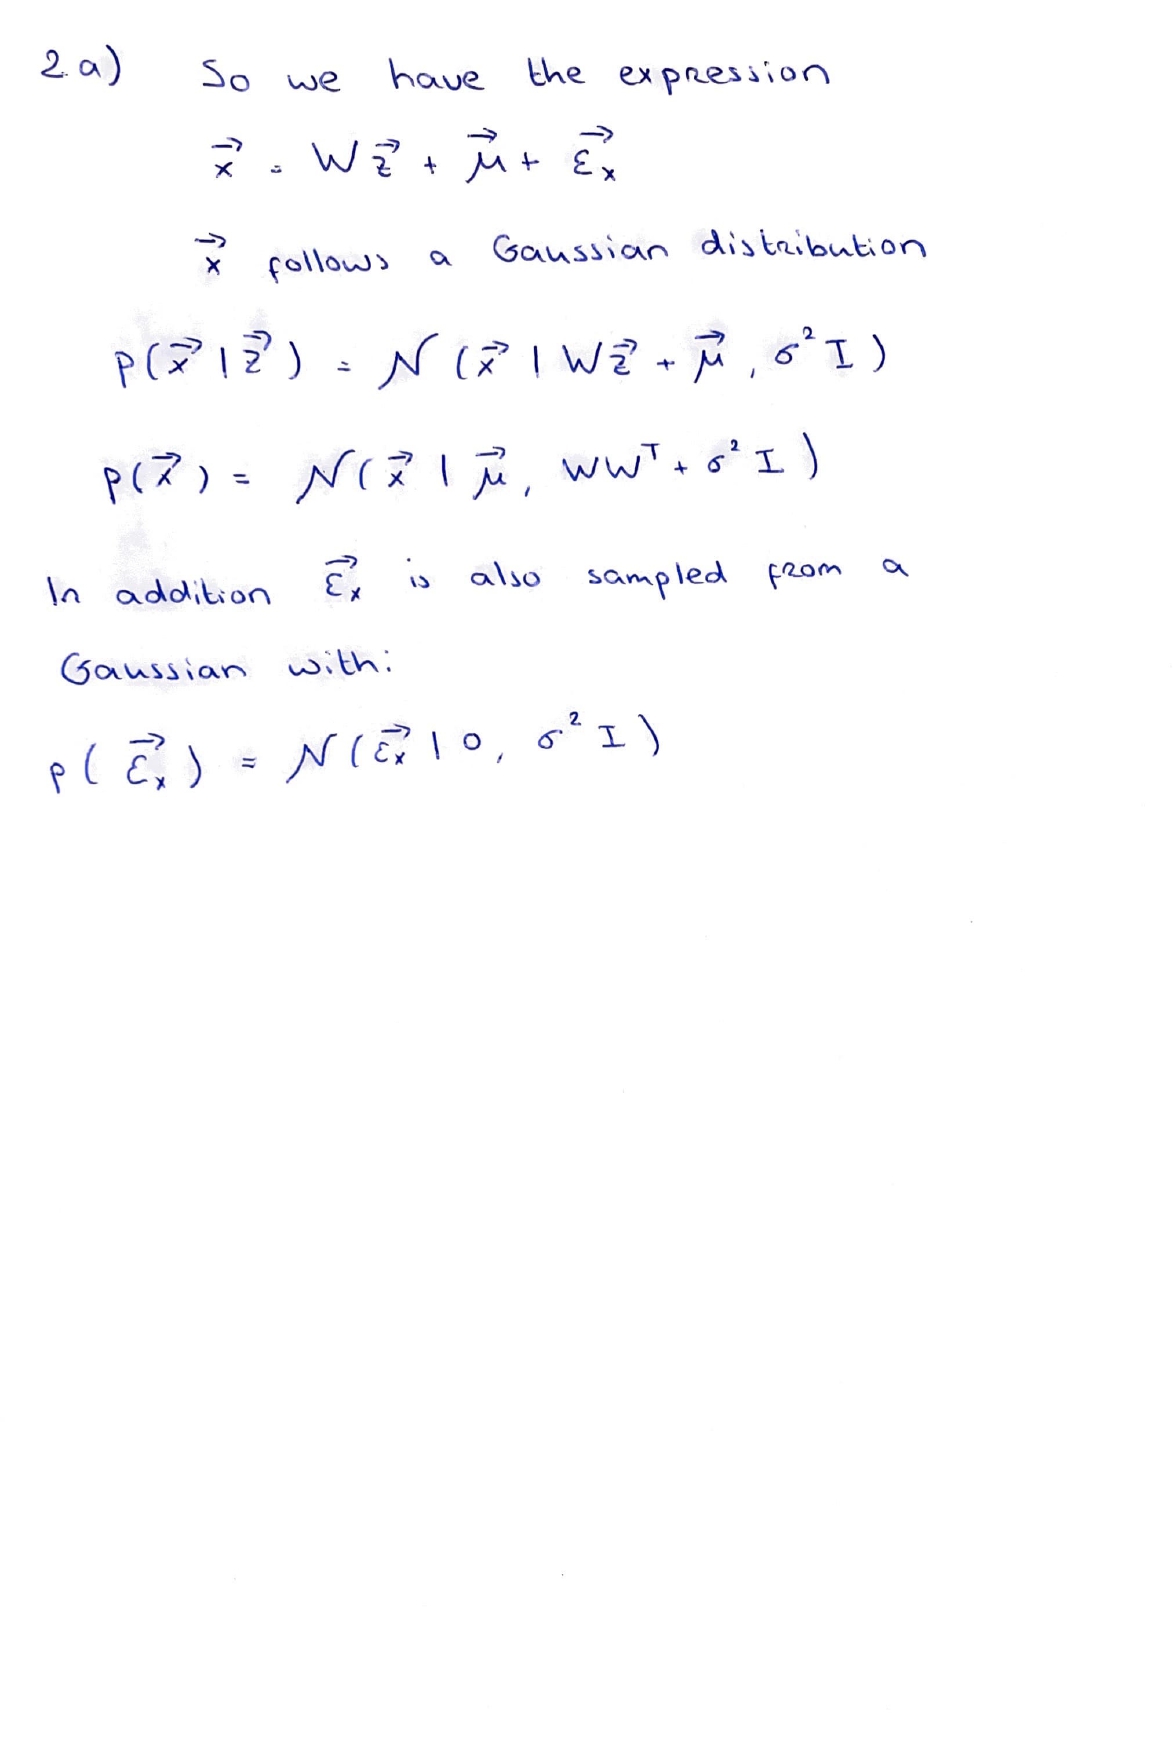 2.a) So we have the expression
x⃗ = Wz⃗ + μ⃗ + ε⃗ₓ
x⃗ follows a Gaussian distribution
p(x⃗ | z⃗) = N(x⃗ | Wz⃗ + μ⃗, σ²I)
p(x⃗) = N(x⃗ | μ⃗, WWᵀ + σ²I)
In addition ε⃗ₓ is also sampled from a
Gaussian with:
p(ε⃗ₓ) = N(ε⃗ₓ | 0, σ²I)